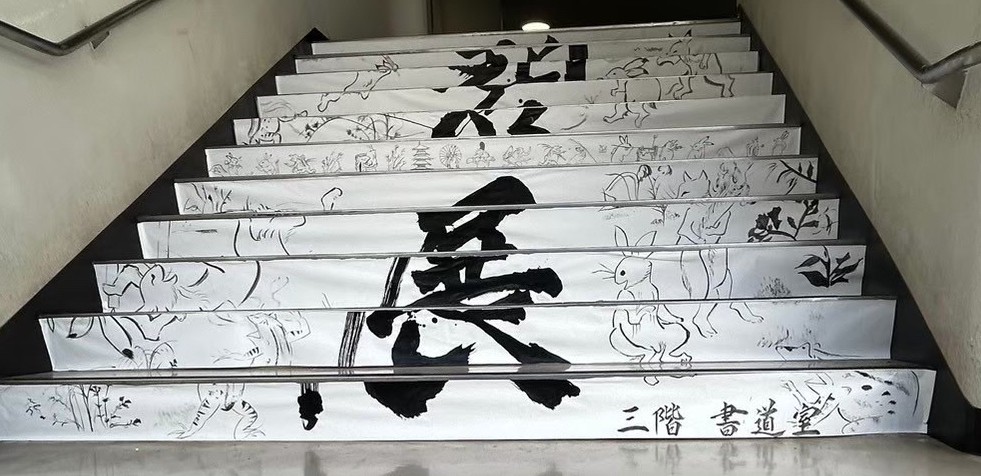 展
三階 書道室